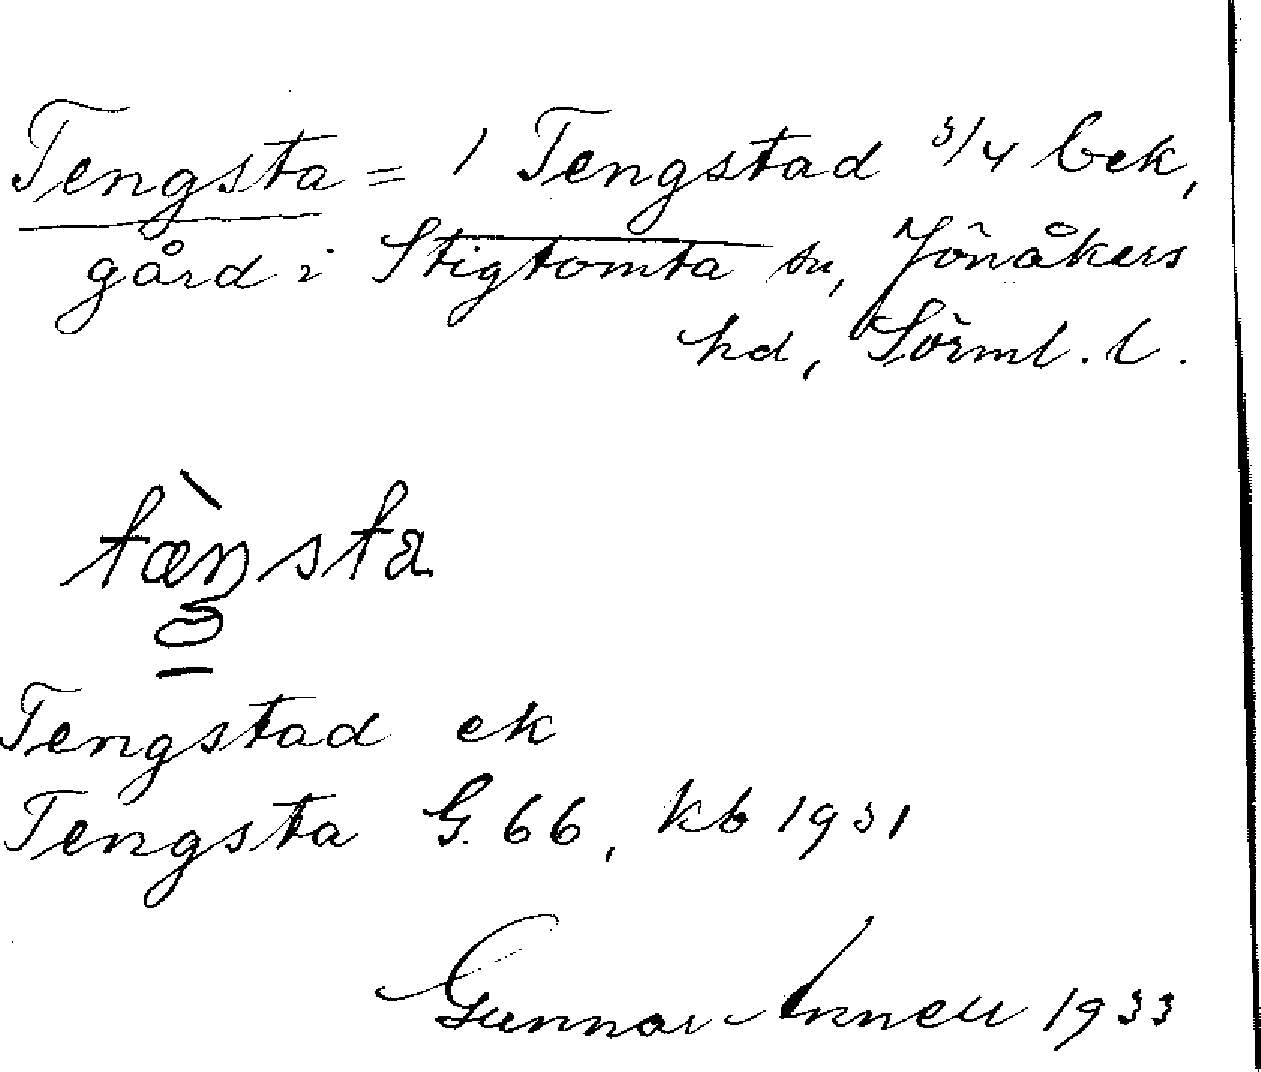 Tengsta = 1 Tengstad 3/4 bek,
gård i Stigtomta sn, Jönåkers
hd, Sörml. l.
tæ̀ŋsta
Tengstad ek
Tengsta G. 66, kb 1931
Gunnar Annell 1933